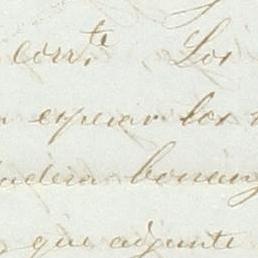 corr.te Los
esperar los
madera bonanz
que adjunte